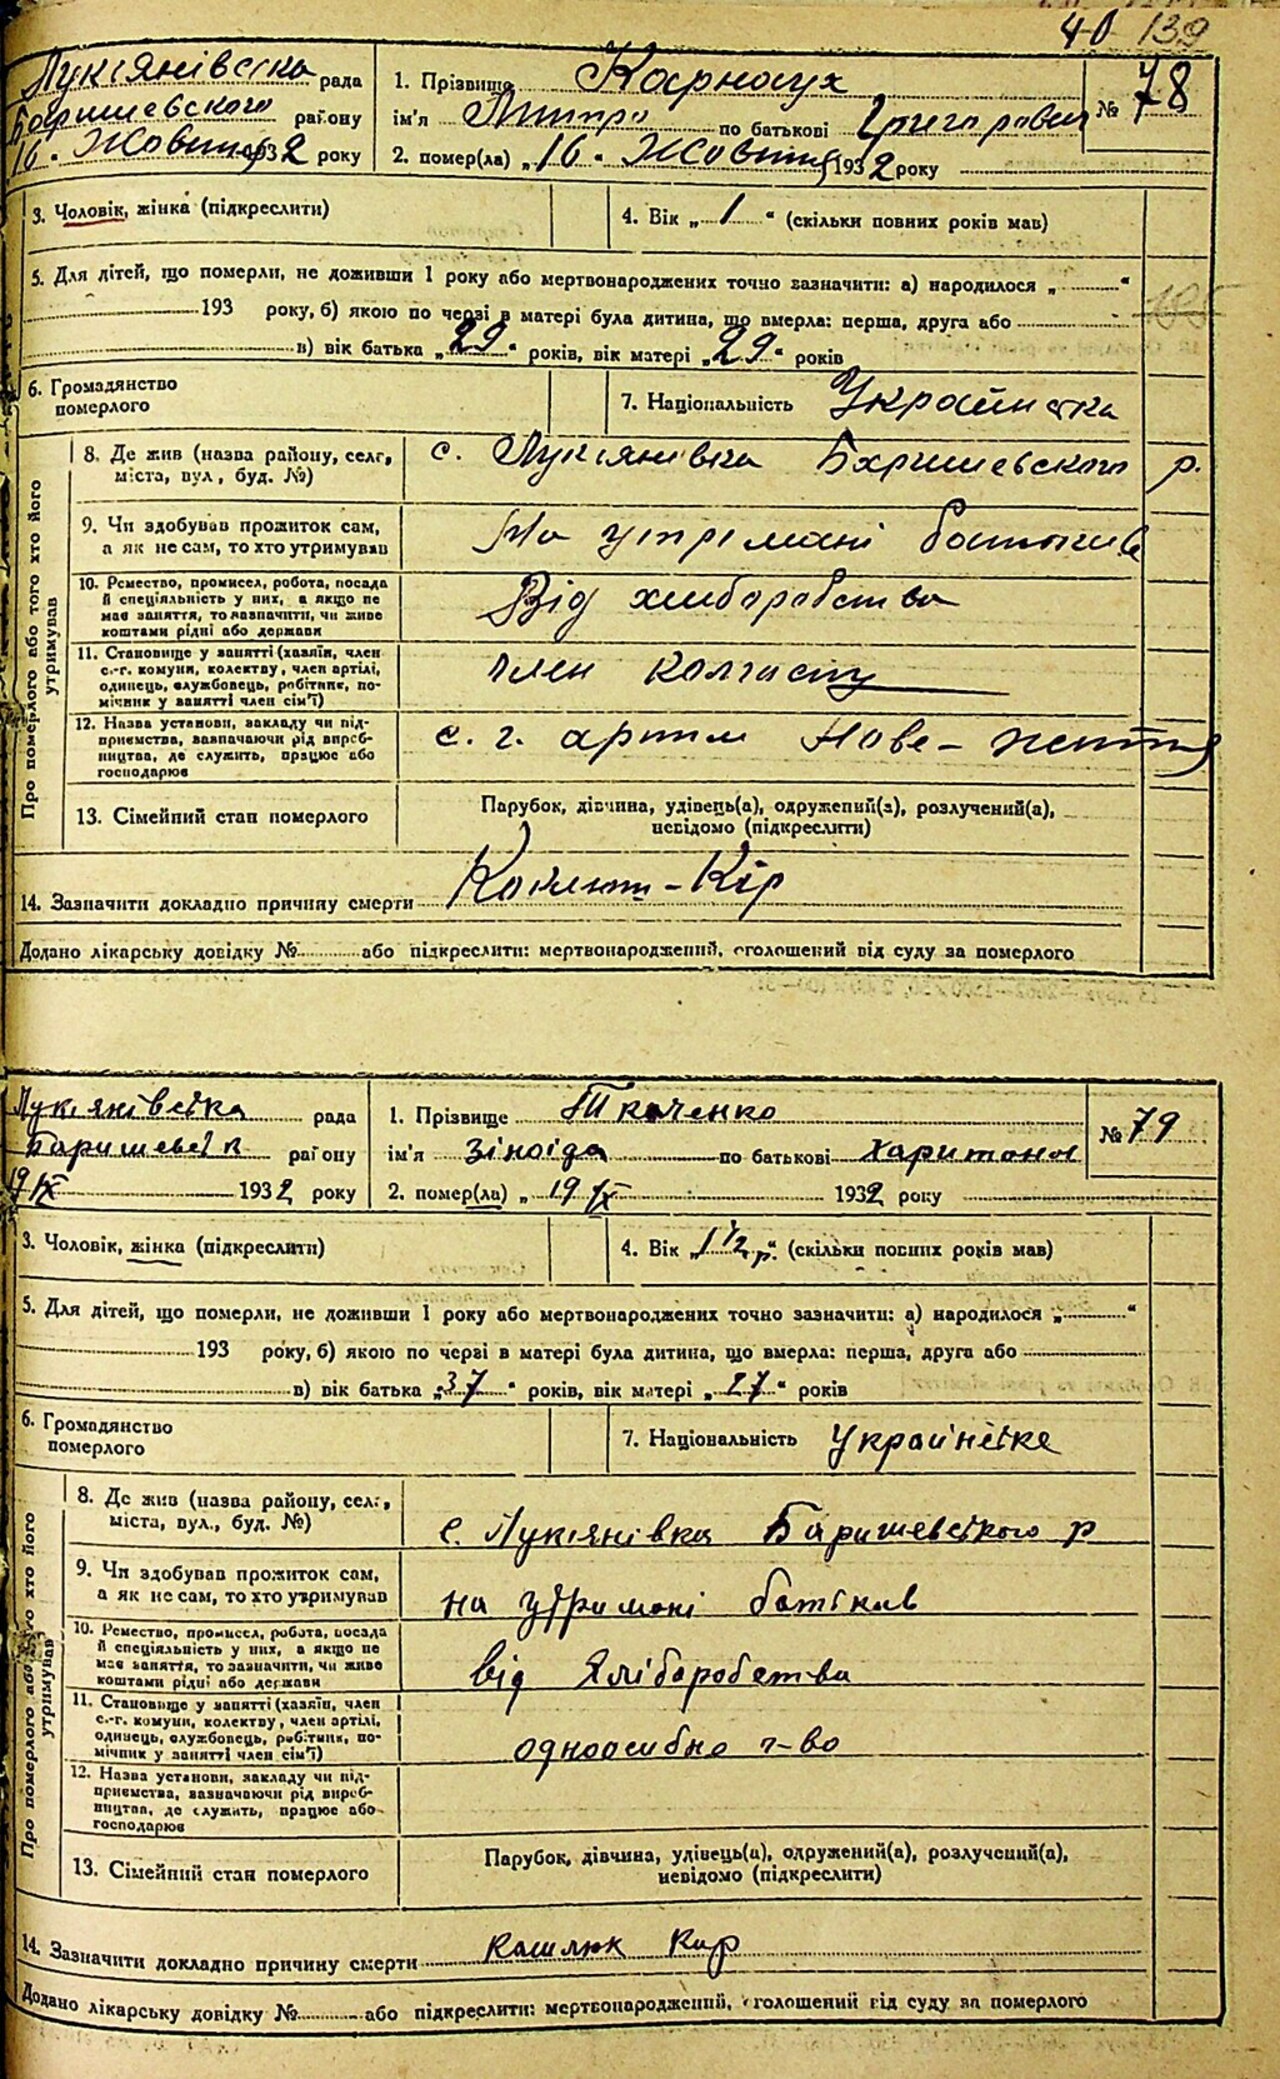 40 139
Лукіянівська рада
Баришевського району
16 Жовтня 1932 року
1. Прізвище Карнаух
ім'я Дмитро по батькові Григорович
№ 78
2. помер(ла) „16“ Жовтня 1932 року
3. Чоловік, жінка (підкреслити)
4. Вік „1“ (скільки повних років мав)
5. Для дітей, що померли, не доживши 1 року або мертвонароджених точно зазначити: а) народилося „ “
193 року, б) якою по черзі в матері була дитина, що вмерла: перша, друга або
в) вік батька „29“ років, вік матері „29“ років
6. Громадянство
померлого
7. Національність Українська
Про померлого або того хто його
утримував
8. Де жив (назва району, села,
міста, вул., буд. №)
с. Лукіянівка Баришевского р.
9. Чи здобував прожиток сам,
а як не сам, то хто утримував
На утрімані батьків
10. Ремество, промисел, робота, посада
й спеціяльність у них, а якщо не
має заняття, то зазначити, чи живе
коштами рідні або держави
Від хлиборобства
11. Становище у занятті (хазяїн, член
с.-г. комуни, колективу, член артілі,
одинець, службовець, робітник, по-
мічник у занятті член сім'ї)
член колгоспу
12. Назва установи, закладу чи під-
приємства, зазначаючи рід вироб-
ництва, де служить, працює або
господарює
с. г. артіль Нове-життя
13. Сімейний стан померлого
Парубок, дівчина, удівець(а), одружений(а), розлучений(а),
невідомо (підкреслити)
14. Зазначити докладно причину смерти Коклюш-Кір
Додано лікарську довідку № або підкреслити: мертвонароджений, оголошений від суду за померлого
Лукіянівська рада
Баришевськ району
19 IX 1932 року
1. Прізвище Ткаченко
ім'я Зіноіда по батькові Харитонов
№ 79
2. помер(ла) „19 IX 1932 року
3. Чоловік, жінка (підкреслити)
4. Вік „1 1/2 р.“ (скільки повних років мав)
5. Для дітей, що померли, не доживши 1 року або мертвонароджених точно зазначити: а) народилося „ “
193 року, б) якою по черзі в матері була дитина, що вмерла: перша, друга або
в) вік батька „37“ років, вік матері „27“ років
6. Громадянство
померлого
7. Національність Українська
Про померлого або того хто його
утримував
8. Де жив (назва району, села,
міста, вул., буд. №)
с. Лукіянівка Баришевського р
9. Чи здобував прожиток сам,
а як не сам, то хто утримував
на утримані батьків
10. Ремество, промисел, робота, посада
й спеціяльність у них, а якщо не
має заняття, то зазначити, чи живе
коштами рідні або держави
від хліборобства
11. Становище у занятті (хазяїн, член
с.-г. комуни, колективу, член артілі,
одинець, службовець, робітник, по-
мічник у занятті член сім'ї)
одноосибно г-во
12. Назва установи, закладу чи під-
приємства, зазначаючи рід вироб-
ництва, де служить, працює або
господарює
13. Сімейний стан померлого
Парубок, дівчина, удівець(а), одружений(а), розлучений(а),
невідомо (підкреслити)
14. Зазначити докладно причину смерти Кашлюк Кир
Додано лікарську довідку № або підкреслити: мертвонароджений, оголошений від суду за померлого